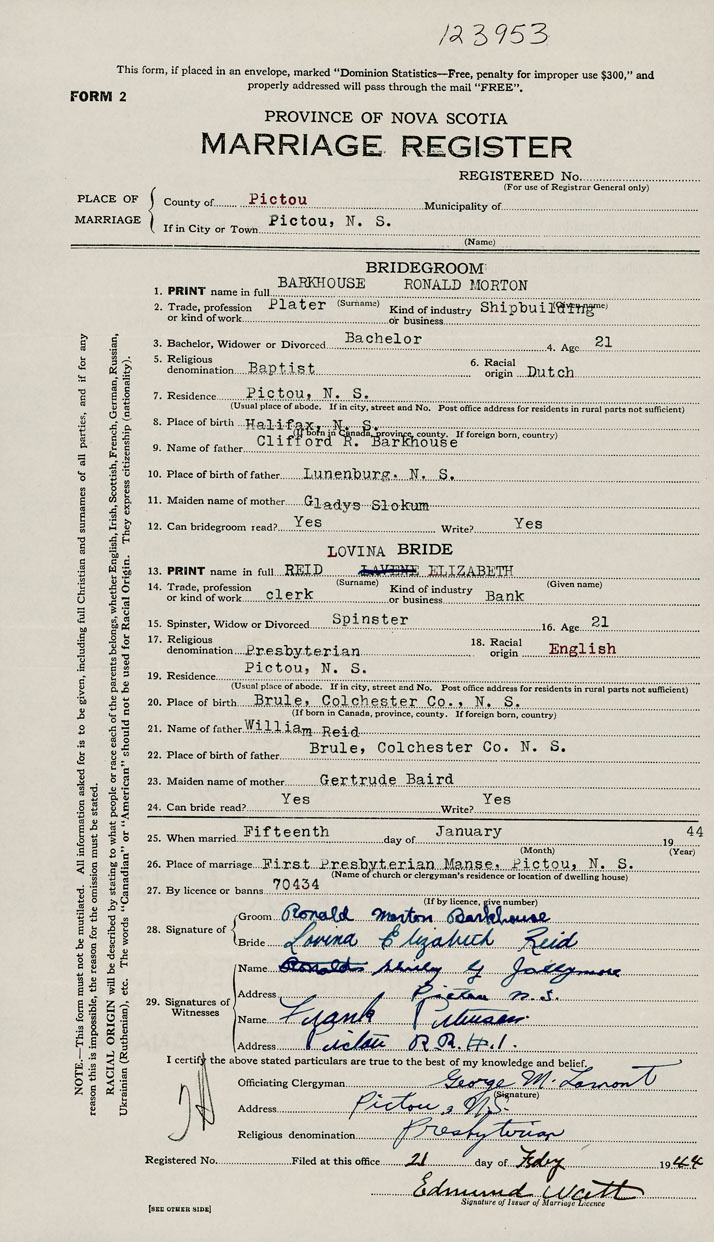 123953
This form, if placed in an envelope, marked “Dominion Statistics—Free, penalty for improper use $300,” and
properly addressed will pass through the mail “FREE”.
FORM 2
PROVINCE OF NOVA SCOTIA
MARRIAGE REGISTER
REGISTERED No.
(For use of Registrar General only)
PLACE OF MARRIAGE
County of Pictou Municipality of
If in City or Town Pictou, N. S.
(Name)
BRIDEGROOM
1. PRINT name in full BARKHOUSE RONALD MORTON
(Surname) (Given name)
2. Trade, profession or kind of work Plater Kind of industry or business Shipbuilding
3. Bachelor, Widower or Divorced Bachelor 4. Age 21
5. Religious denomination Baptist 6. Racial origin Dutch
7. Residence Pictou, N. S.
(Usual place of abode. If in city, street and No. Post office address for residents in rural parts not sufficient)
8. Place of birth Halifax, N. S.
(If born in Canada, province, county. If foreign born, country)
9. Name of father Clifford R. Barkhouse
10. Place of birth of father Lunenburg. N. S.
11. Maiden name of mother Gladys Slokum
12. Can bridegroom read? Yes Write? Yes
LOVINA BRIDE
13. PRINT name in full REID LAVENE ELIZABETH
(Surname) (Given name)
14. Trade, profession or kind of work clerk Kind of industry or business Bank
15. Spinster, Widow or Divorced Spinster 16. Age 21
17. Religious denomination Presbyterian 18. Racial origin English
19. Residence Pictou, N. S.
(Usual place of abode. If in city, street and No. Post office address for residents in rural parts not sufficient)
20. Place of birth Brule, Colchester Co., N. S.
(If born in Canada, province, county. If foreign born, country)
21. Name of father William Reid
22. Place of birth of father Brule, Colchester Co. N. S.
23. Maiden name of mother Gertrude Baird
24. Can bride read? Yes Write? Yes
25. When married Fifteenth day of January 1944
(Month) (Year)
26. Place of marriage First Presbyterian Manse, Pictou, N. S.
(Name of church or clergyman's residence or location of dwelling house)
27. By licence or banns 70434
(If by licence, give number)
28. Signature of
Groom Ronald Morton Barkhouse
Bride Lovina Elizabeth Reid
29. Signatures of Witnesses
Name Ronald Shirly G Jollymore
Address Pictou N.S.
Name Frank
Address Pictou R.R.#.1.
I certify the above stated particulars are true to the best of my knowledge and belief.
Officiating Clergyman George M. Lamont
(Signature)
Address Pictou, N.S.
Religious denomination Presbyterian
Registered No. Filed at this office 21 day of Feby 1944
Edmund Watt
Signature of Issuer of Marriage Licence
[SEE OTHER SIDE]
NOTE.—This form must not be mutilated. All information asked for is to be given, including full Christian and surnames of all parties, and if for any
reason this is impossible, the reason for the omission must be stated.
RACIAL ORIGIN will be described by stating to what people or race each of the parents belongs, whether English, Irish, Scottish, French, German, Russian,
Ukrainian (Ruthenian), etc. The words “Canadian” or “American” should not be used for Racial Origin. They express citizenship (nationality).